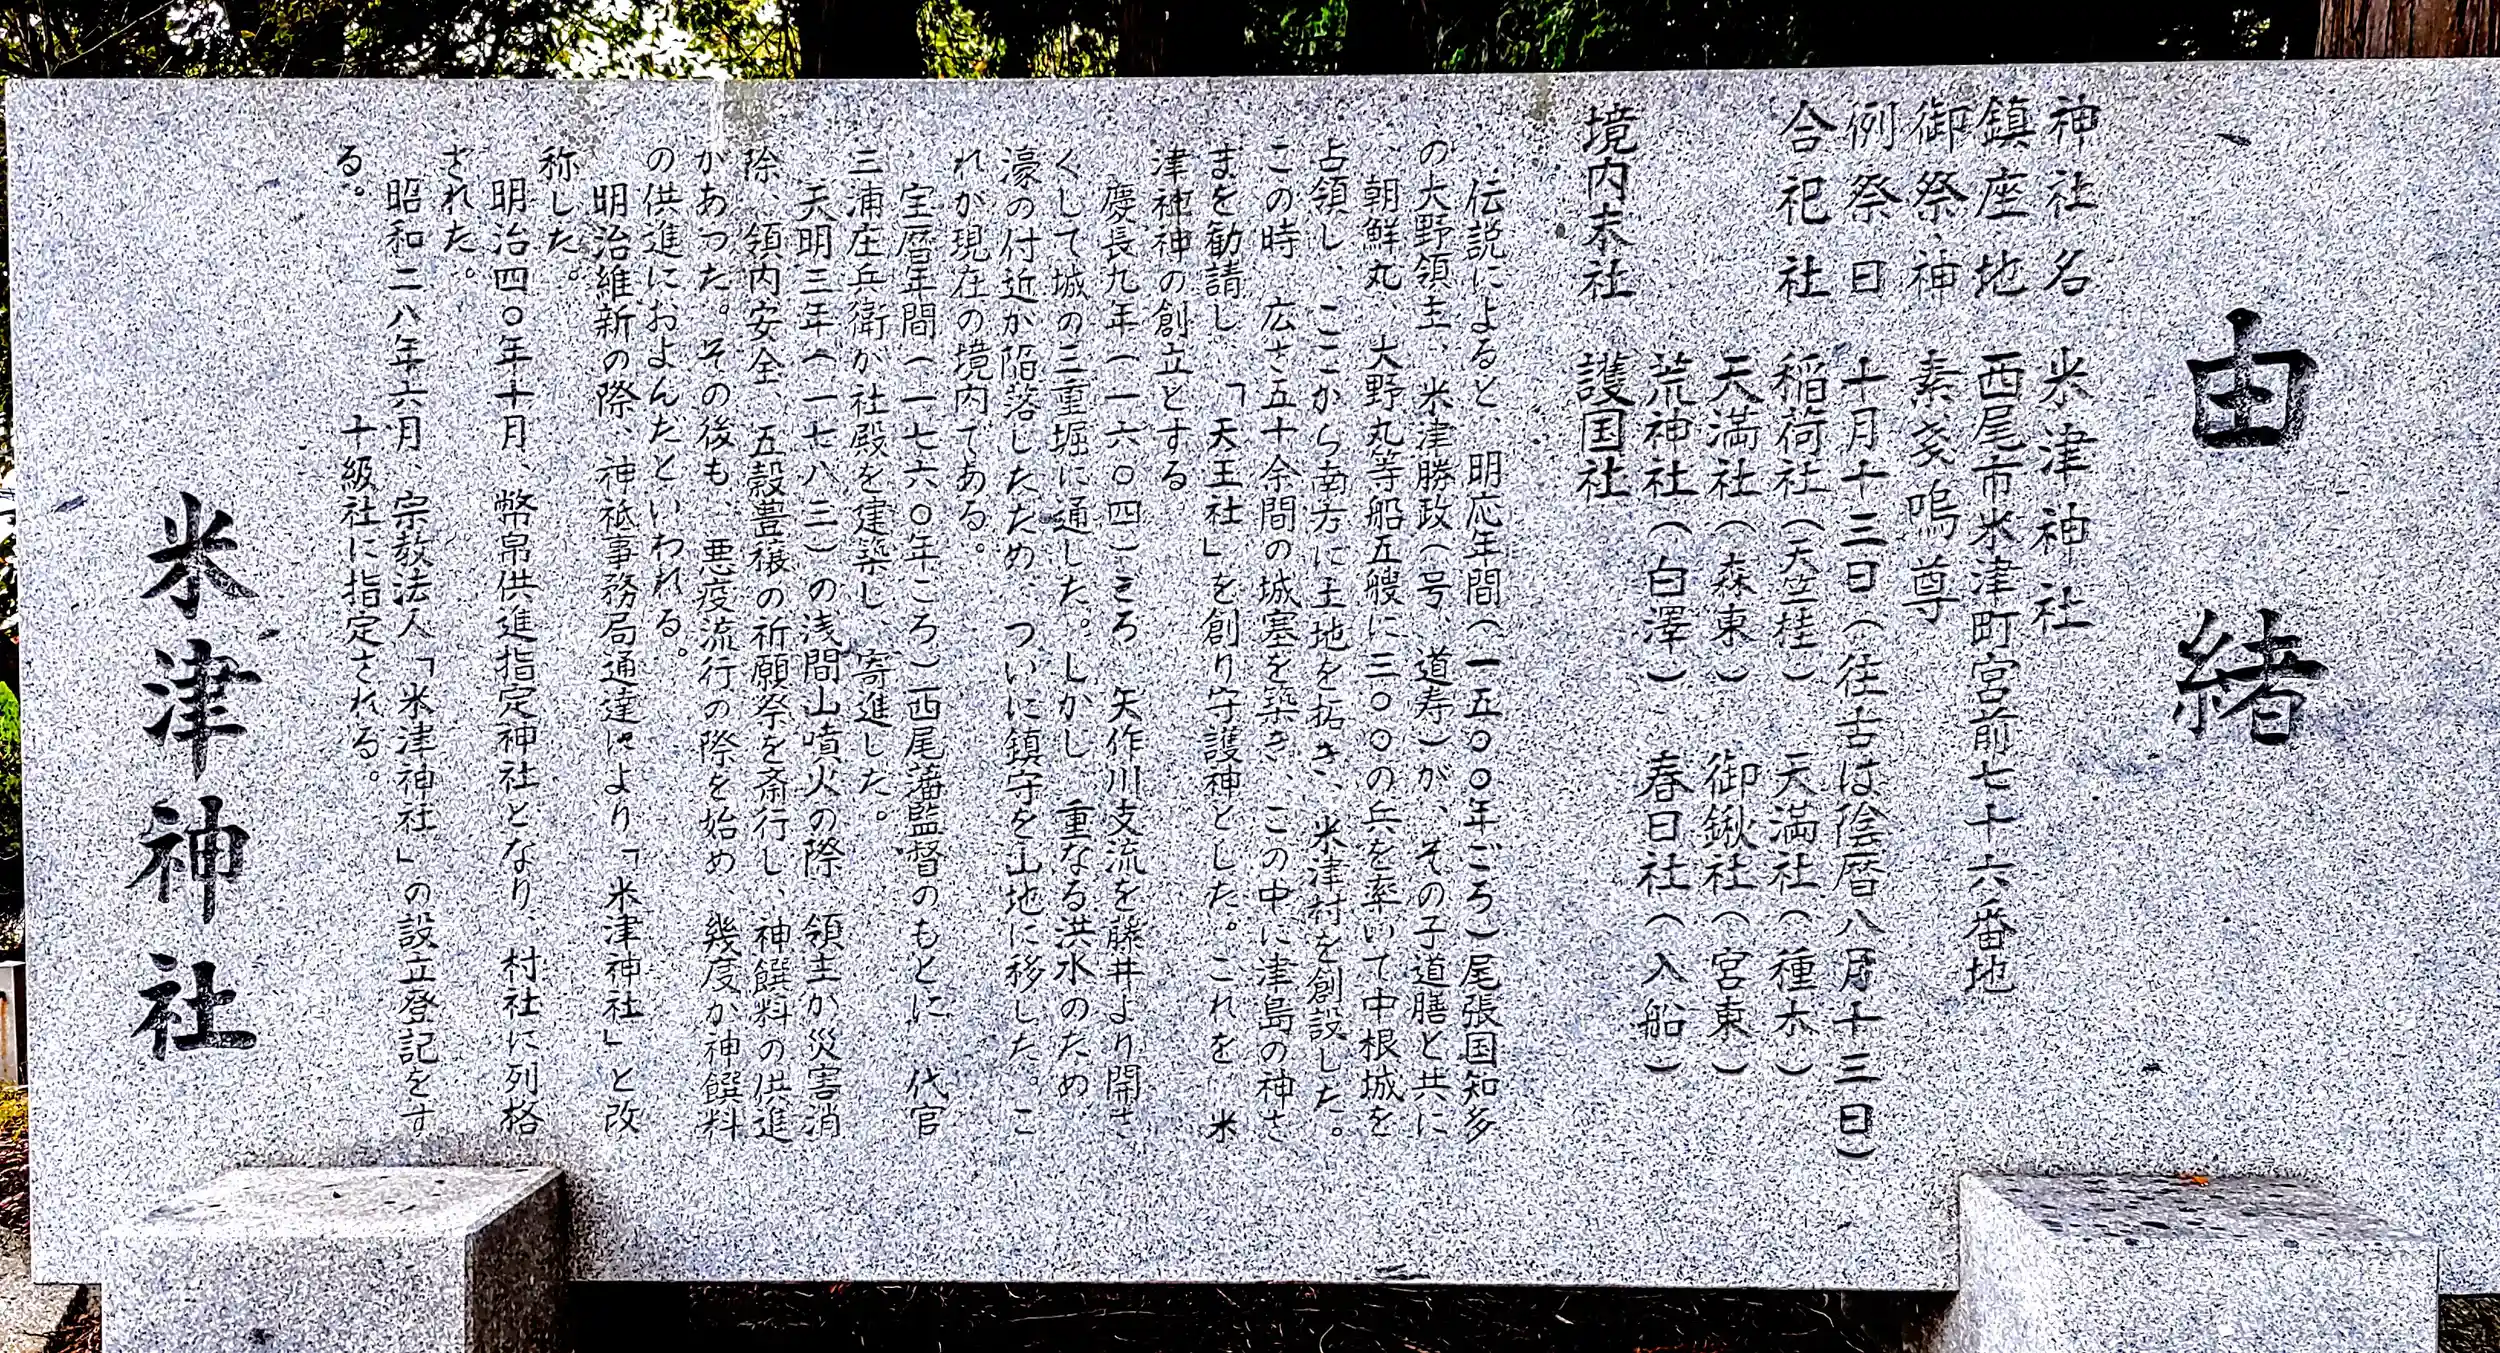 由緒
神社名 米津神社
鎮座地 西尾市米津町宮前七十六番地
御祭神 素戔嗚尊
例祭日 十月十三日(往古は陰暦八月十三日)
合祀社 稲荷社(天竺桂) 天満社(種木)
天満社(森東) 御鍬社(宮東)
荒神社(白澤) 春日社(入船)
境内末社 護国社
伝説によると、明応年間(一五〇〇年ごろ)尾張国知多
の大野領主、米津勝政(号、道寿)が、その子道膳と共に
、朝鮮丸、大野丸等船五艘に三〇〇の兵を率いて中根城を
占領し、ここから南方に土地を拓き、米津村を創設した。
この時、広さ五十余間の城塞を築き、この中に津島の神さ
まを勧請し、「天王社」を創り守護神とした。これを、米
津神神の創立とする。
慶長九年(一六〇四)ころ、矢作川支流を藤井より開さ
くして城の三重堀に通した。しかし、重なる洪水のため、
濠の付近が陥落したため、ついに鎮守を山地に移した。こ
れが現在の境内である。
宝暦年間(一七六〇年ころ)西尾藩監督のもとに、代官
三浦庄兵衛が社殿を建築し、寄進した。
天明三年(一七八三)の浅間山噴火の際、領主が災害消
除、領内安全、五穀豊穣の祈願祭を斎行し、神饌料の供進
があった。その後も、悪疫流行の際を始め、幾度か神饌料
の供進におよんだといわれる。
明治維新の際、神祇事務局通達により「米津神社」と改
称した。
明治四〇年十月、幣帛供進指定神社となり、村社に列格
された。
昭和二八年六月、宗教法人「米津神社」の設立登記をす
る。 十級社に指定される。
米津神社